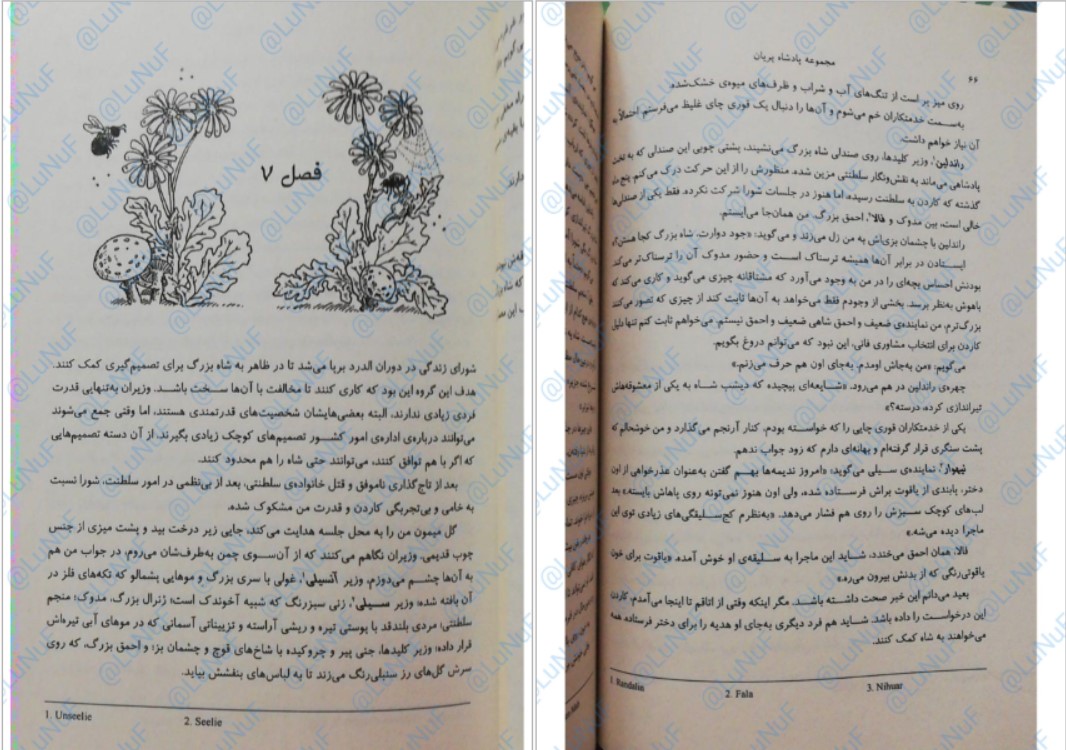 فصل ۷
شورای زندگی در دوران الدرد برپا می‌شد تا در ظاهر به شاه بزرگ برای تصمیم‌گیری کمک کنند.
هدف این گروه این بود که کاری کنند تا مخالفت با آن‌ها سخت باشد. وزیران به‌تنهایی قدرت
فردی زیادی ندارند، البته بعضی‌هایشان شخصیت‌های قدرتمندی هستند، اما وقتی جمع می‌شوند
می‌توانند درباره‌ی اداره‌ی امور کشور تصمیم‌های کوچک زیادی بگیرند. از آن دسته تصمیم‌هایی
که اگر با هم توافق کنند، می‌توانند حتی شاه را هم محدود کنند.
بعد از تاج‌گذاری ناموفق و قتل خانواده‌ی سلطنتی، بعد از بی‌نظمی در امور سلطنت، شورا نسبت
به خامی و بی‌تجربگی کاردن و قدرت من مشکوک شده.
گل میمون من را به محل جلسه هدایت می‌کند، جایی زیر درخت بید و پشت میزی از جنس
چوب قدیمی. وزیران نگاهم می‌کنند که از آن‌سوی چمن به‌طرف‌شان می‌روم، در جواب من هم
به آن‌ها چشم می‌دوزم، وزیر آنسیلی¹، غولی با سری بزرگ و موهایی پشمالو که تکه‌های فلز در
آن بافته شده؛ وزیر سیلی²، زنی سبزرنگ که شبیه آخوندک است؛ ژنرال بزرگ، مدوک؛ منجم
سلطنتی؛ مردی بلندقد با پوستی تیره و ریشی آراسته و تزییناتی آسمانی که در موهای آبی تیره‌اش
قرار داده؛ وزیر کلیدها، جنی پیر و چروکیده با شاخ‌های قوچ و چشمان بز؛ و احمق بزرگ، که روی
سرش گل‌های رز سنبلی‌رنگ می‌زند تا به لباس‌های بنفشش بیاید.
1. Unseelie 2. Seelie
مجموعه پادشاه پریان
۶۶
روی میز پر است از تنگ‌های آب و شراب و ظرف‌های میوه‌ی خشک‌شده.
به‌سمت خدمتکاران خم می‌شوم و آن‌ها را دنبال یک قوری چای غلیظ می‌فرستم. احتمالاً به
آن نیاز خواهم داشت.
راندلین¹، وزیر کلیدها، روی صندلی شاه بزرگ می‌نشیند، پشتی چوبی این صندلی که به تخت
پادشاهی می‌ماند به نقش‌ونگار سلطنتی مزین شده. منظورش را از این حرکت درک می‌کنم. پنج ماه
گذشته که کاردن به سلطنت رسیده، اما هنوز در جلسات شورا شرکت نکرده. فقط یکی از صندلی‌ها
خالی است، بین مدوک و فالا²، احمق بزرگ. من همان‌جا می‌ایستم.
راندلین با چشمان بزی‌اش به من زل می‌زند و می‌گوید: «جود دوارت، شاه بزرگ کجا هستن؟»
ایستادن در برابر آن‌ها همیشه ترسناک است و حضور مدوک آن را ترسناک‌تر می‌کند
بودنش احساس بچه‌ای را در من به وجود می‌آورد که مشتاقانه چیزی می‌گوید و کاری می‌کند که
باهوش به‌نظر برسد. بخشی از وجودم فقط می‌خواهد به آن‌ها ثابت کند از چیزی که تصور می‌کنند
بزرگ‌ترم، من نماینده‌ی ضعیف و احمق شاهی ضعیف و احمق نیستم. می‌خواهم ثابت کنم تنها دلیل
کاردن برای انتخاب مشاوری فانی، این نبود که می‌توانم دروغ بگویم.
می‌گویم: «من به‌جاش اومدم. به‌جای اون هم حرف می‌زنم.»
چهره‌ی راندلین در هم می‌رود. «شایعه‌ای پیچیده که دیشب شاه به یکی از معشوقه‌هاش
تیراندازی کرده. درسته؟»
یکی از خدمتکاران قوری چایی را که خواسته بودم، کنار آرنجم می‌گذارد و من خوشحالم که
پشت سنگری قرار گرفته‌ام و بهانه‌ای دارم که زود جواب ندهم.
نیهوار³، نماینده‌ی سیلی می‌گوید: «امروز ندیمه‌ها بهم گفتن به‌عنوان عذرخواهی از اون
دختر، پابندی از یاقوت براش فرستاده شده، ولی اون هنوز نمی‌تونه روی پاهاش بایسته.» بعد
لب‌های کوچک سبزش را روی هم فشار می‌دهد. «به‌نظرم کج‌سلیقگی‌های زیادی توی این
ماجرا دیده می‌شه.»
فالا، همان احمق می‌خندد، شاید این ماجرا به سلیقه‌ی او خوش آمده «یاقوت برای خون
یاقوتی‌رنگی که از بدنش بیرون می‌ره.»
بعید می‌دانم این خبر صحت داشته باشد. مگر اینکه وقتی از اتاقم تا اینجا می‌آمدم، کاردن
این درخواست را داده باشد. شاید هم فرد دیگری به‌جای او هدیه را برای دختر فرستاده همه
می‌خواهند به شاه کمک کنند.
1. Randalin 2. Fala 3. Nihuar
@LuNuF